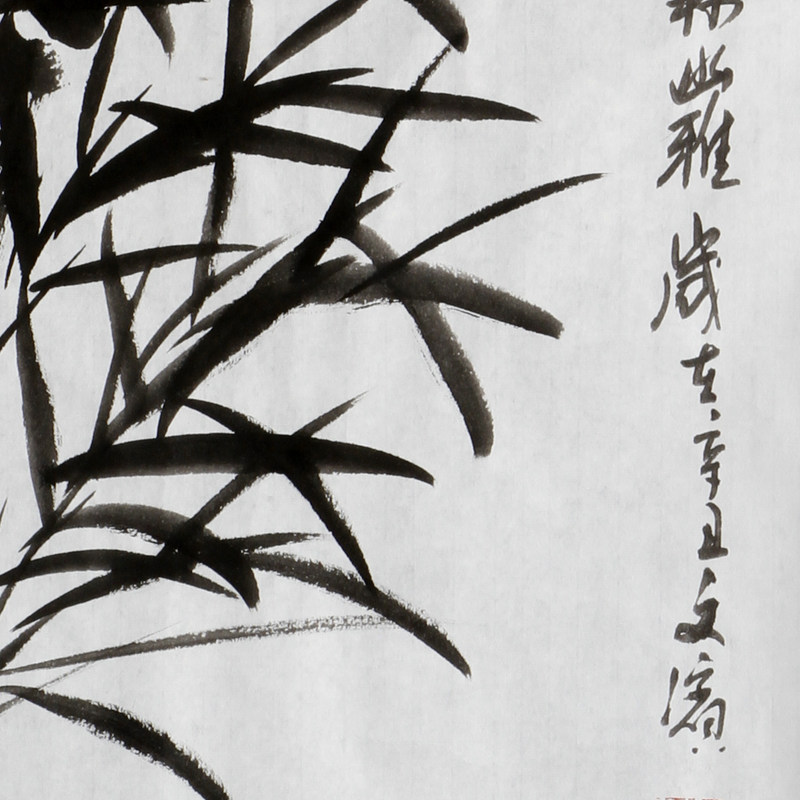 幽雅歲在辛丑文濱